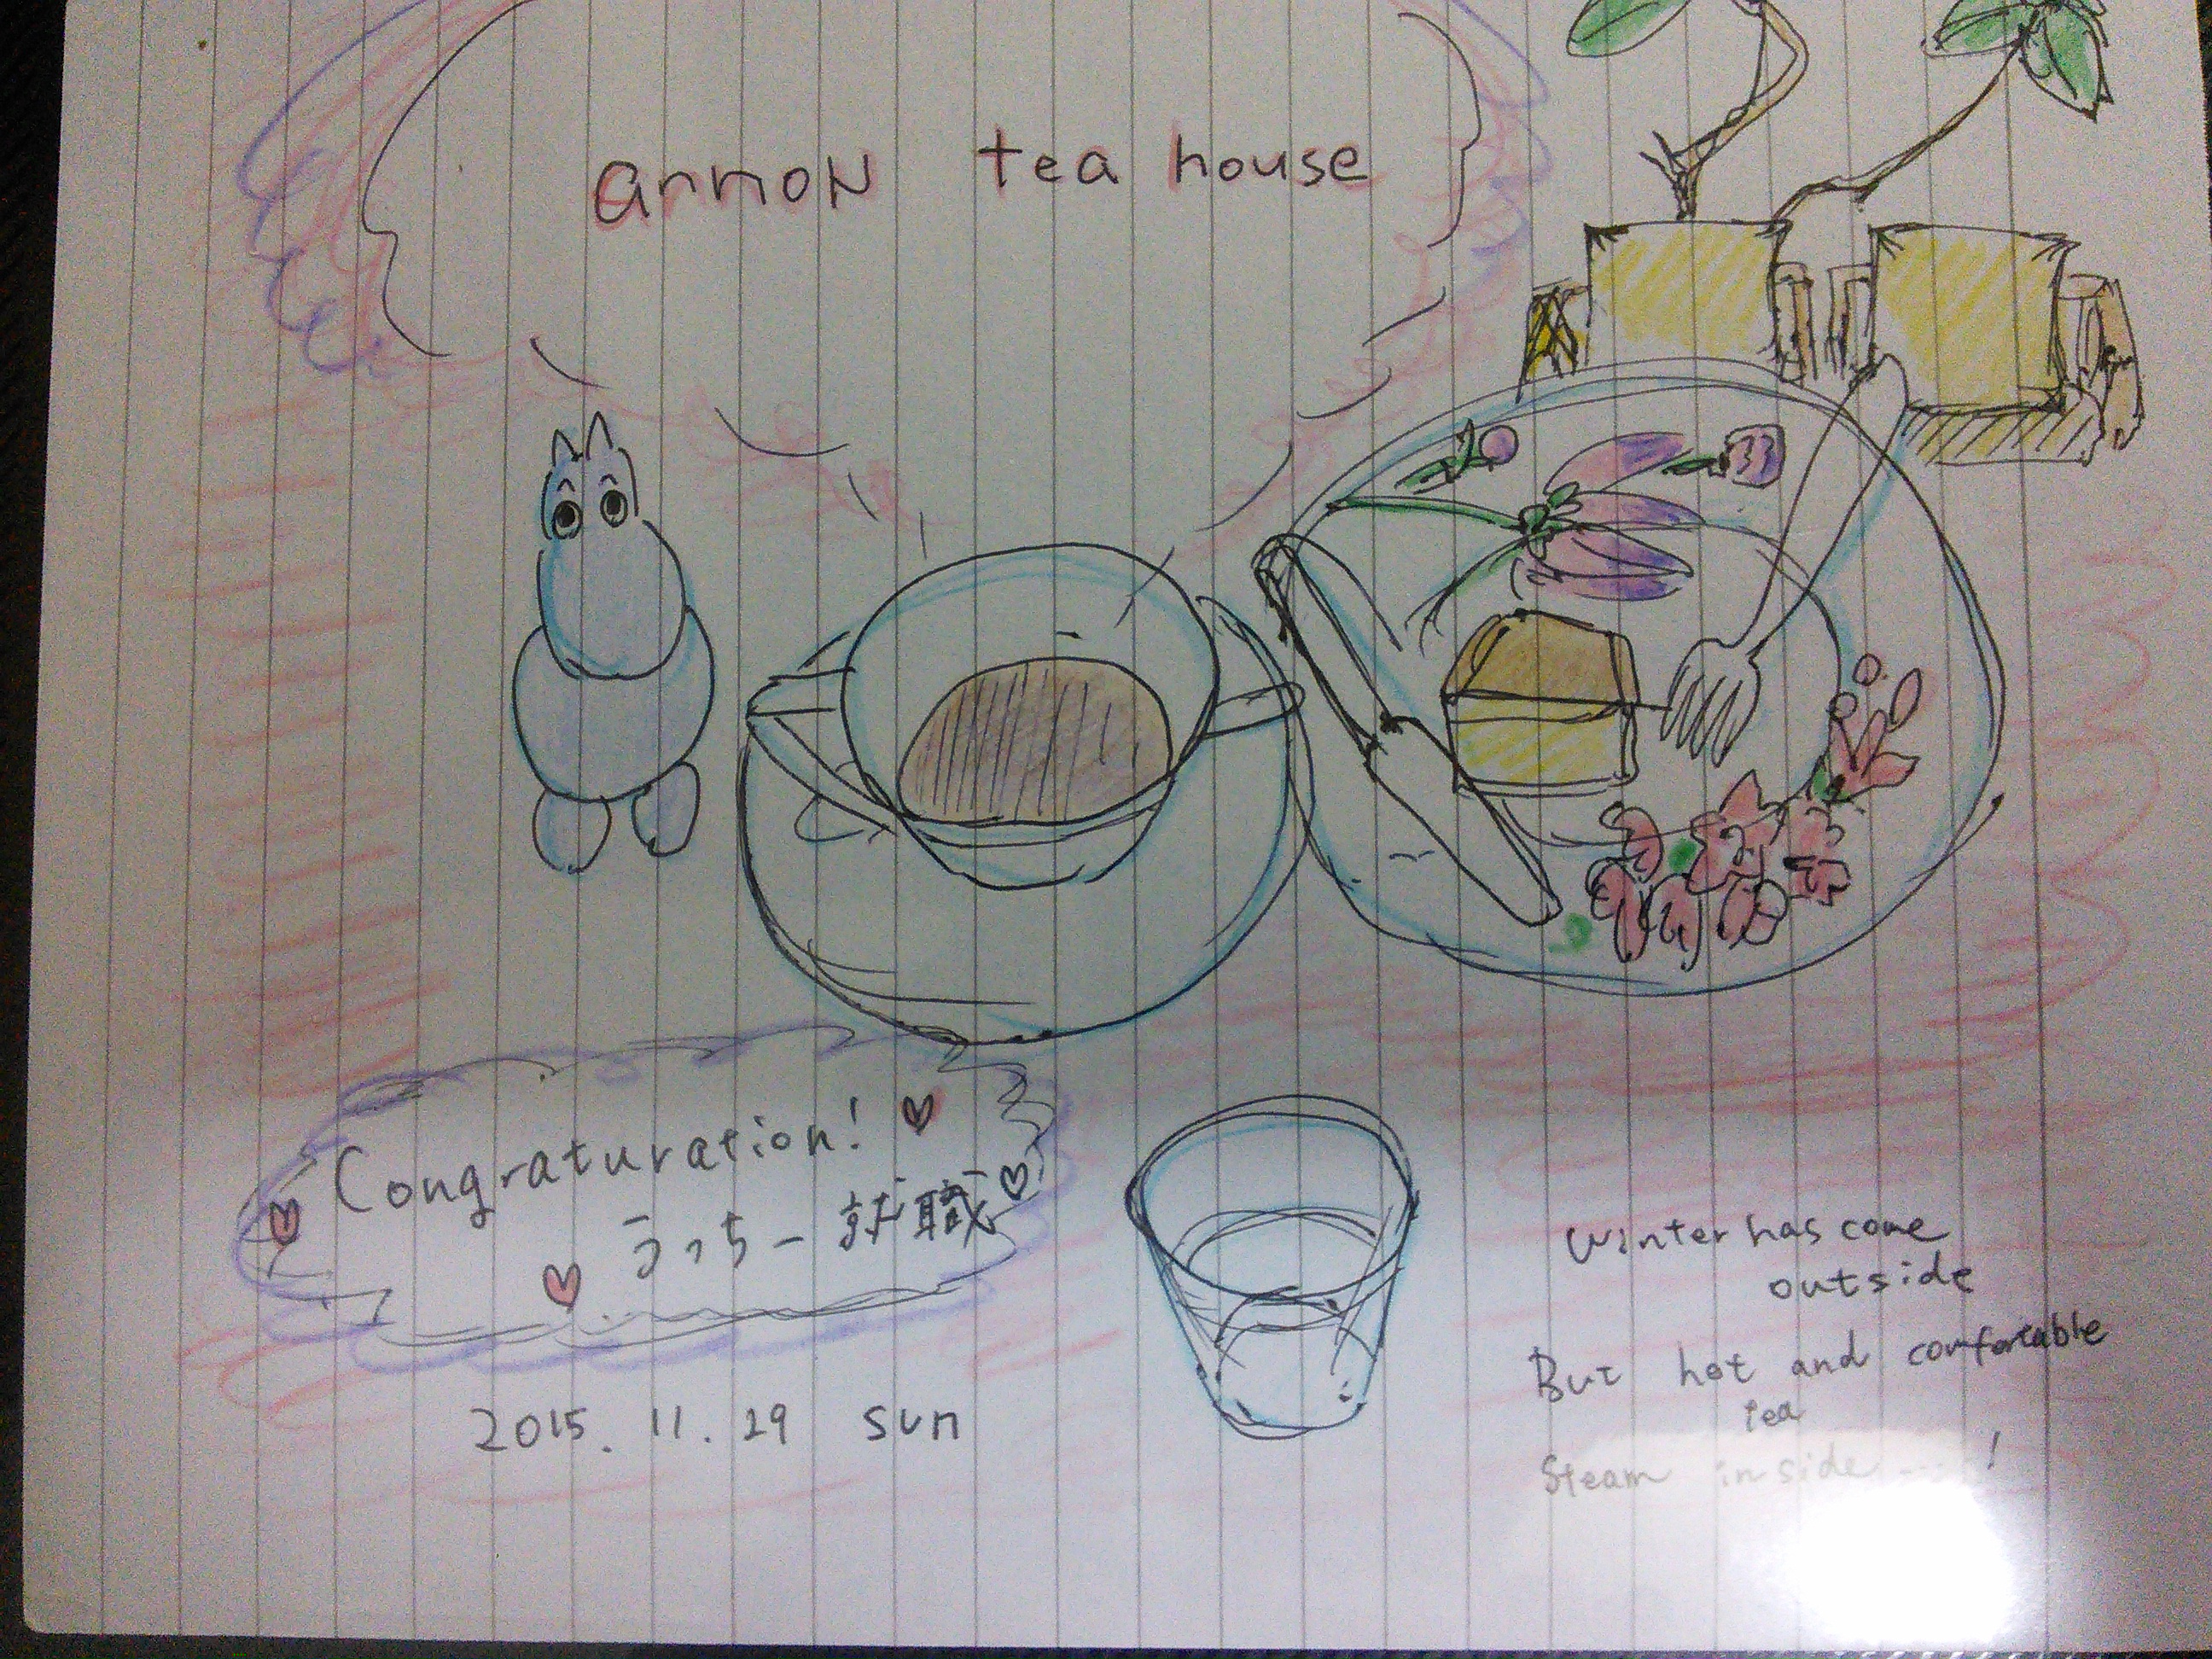 annon tea house
Congraturation!
うっちー就職
2015. 11. 29 sun
Winter has come
outside
But hot and comfortable
tea
Steam inside ...!